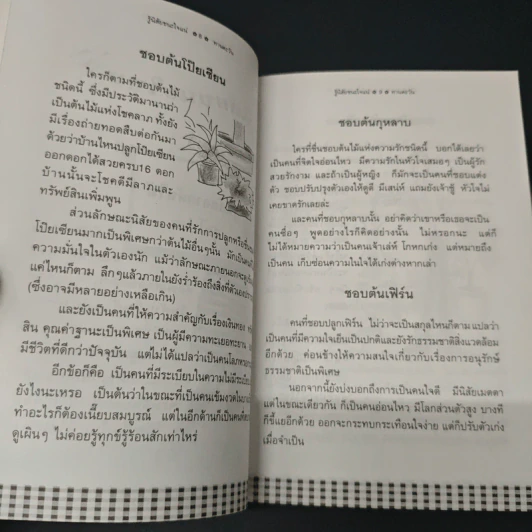 รู้นิสัยชนะใจแน่ ๑๘๑ ทานตะวัน
ชอบต้นโป๊ยเซียน
ใครก็ตามที่ชอบต้นไม้
ชนิดนี้ ซึ่งมีประวัติมานานว่า
เป็นต้นไม้แห่งโชคลาภ ทั้งยัง
มีเรื่องถ่ายทอดสืบต่อกันมา
ด้วยว่าบ้านไหนปลูกโป๊ยเซียน
ออกดอกได้สวยครบ16 ดอก
บ้านนั้นจะโชคดีมีลาภและ
ทรัพย์สินเพิ่มพูน
ส่วนลักษณะนิสัยของคนที่รักการปลูกหรือชื่นชอบ
โป๊ยเซียนมากเป็นพิเศษกว่าต้นไม้อื่นๆนั้น มักเป็นคน
ความมั่นใจในตัวเองนัก แม้ว่าลักษณะภายนอกจะดู
แค่ไหนก็ตาม ลึกๆแล้วภายในยังร่ำร้องถึงสิ่งที่ตัวเอง
(ซึ่งอาจมีหลายอย่างเหลือเกิน)
และยังเป็นคนที่ให้ความสำคัญกับเรื่องเงินทอง
สิน คุณค่าฐานะเป็นพิเศษ เป็นผู้มีความทะเยอทะยาน
มีชีวิตที่ดีกว่าปัจจุบัน แต่ไม่ได้แปลว่าเป็นคนโลภ
อีกข้อก็คือ เป็นคนที่มีระเบียบในความไม่มีระเบียบ
ยังไงนะเหรอ เป็นต้นว่าในขณะที่เป็นคนเข้มงวด
ทำอะไรก็ต้องเนี้ยบสมบูรณ์ แต่ในอีกด้านก็เป็นคน
ดูเผินๆ ไม่ค่อยรู้ทุกข์รู้ร้อนสักเท่าไหร่
รู้นิสัยชนะใจแน่ ทานตะวัน
ชอบต้นกุหลาบ
ใครที่ชื่นชอบต้นไม้แห่งความรักชนิดนี้ บอกได้เลยว่า
เป็นคนที่จิตใจอ่อนไหว มีความรักในหัวใจเสมอๆ เป็นผู้รัก
สวยรักงาม และถ้าเป็นผู้หญิง ก็มักจะเป็นคนที่ชอบแต่ง
ตัว ชอบปรับปรุงตัวเองให้ดูดี มีเสน่ห์ แถมยังเจ้าชู้ หัวใจไม่
เคยขาดรักเลยล่ะ
และคนที่ชอบกุหลาบนั้น อย่าคิดว่าเขาหรือเธอจะเป็น
คนซื่อๆ พูดอย่างไรก็คิดอย่างนั้น ไม่หรอกนะ แต่ก็
ไม่ได้หมายความว่าเป็นคนเจ้าเล่ห์ โกหกเก่ง แต่หมายถึง
เป็นคน เก็บซ่อนความในใจได้เก่งต่างหากเล่า
ชอบต้นเฟิร์น
คนที่ชอบปลูกเฟิร์น ไม่ว่าจะเป็นสกุลไหนก็ตาม แปลว่า
เป็นคนที่มีความใจเย็นเป็นปกติและยังรักธรรมชาติสิ่งแวดล้อม
อีกด้วย ค่อนข้างให้ความสนใจเกี่ยวกับเรื่องการอนุรักษ์
ธรรมชาติเป็นพิเศษ
นอกจากนี้ยังบ่งบอกถึงการเป็นคนใจดี มีนิสัยเมตตา
แต่ในขณะเดียวกัน ก็เป็นคนอ่อนไหว มีโลกส่วนตัวสูง บางที
ก็ขี้แยอีกด้วย ออกจะกระทบกระเทือนใจง่าย แต่ก็ปรับตัวเก่ง
เมื่อจำเป็น